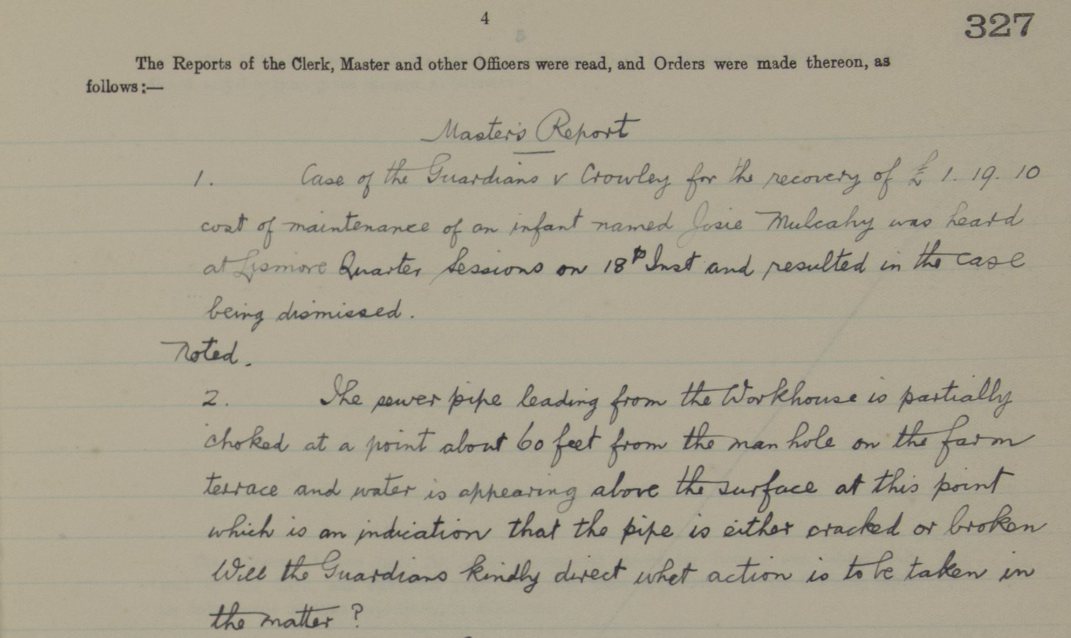 4
327
The Reports of the Clerk, Master and other Officers were read, and Orders were made thereon, as
follows:—
Master's Report
1. Case of the Guardians v Crowley for the recovery of £ 1. 19. 10
cost of maintenance of an infant named Josie Mulcahy was heard
at Lismore Quarter Sessions on 18th Inst and resulted in the case
being dismissed.
Noted.
2. The sewer pipe leading from the Workhouse is partially
choked at a point about 60 feet from the man hole on the farm
terrace and water is appearing above the surface at this point
which is an indication that the pipe is either cracked or broken
Will the Guardians kindly direct what action is to be taken in
the matter?